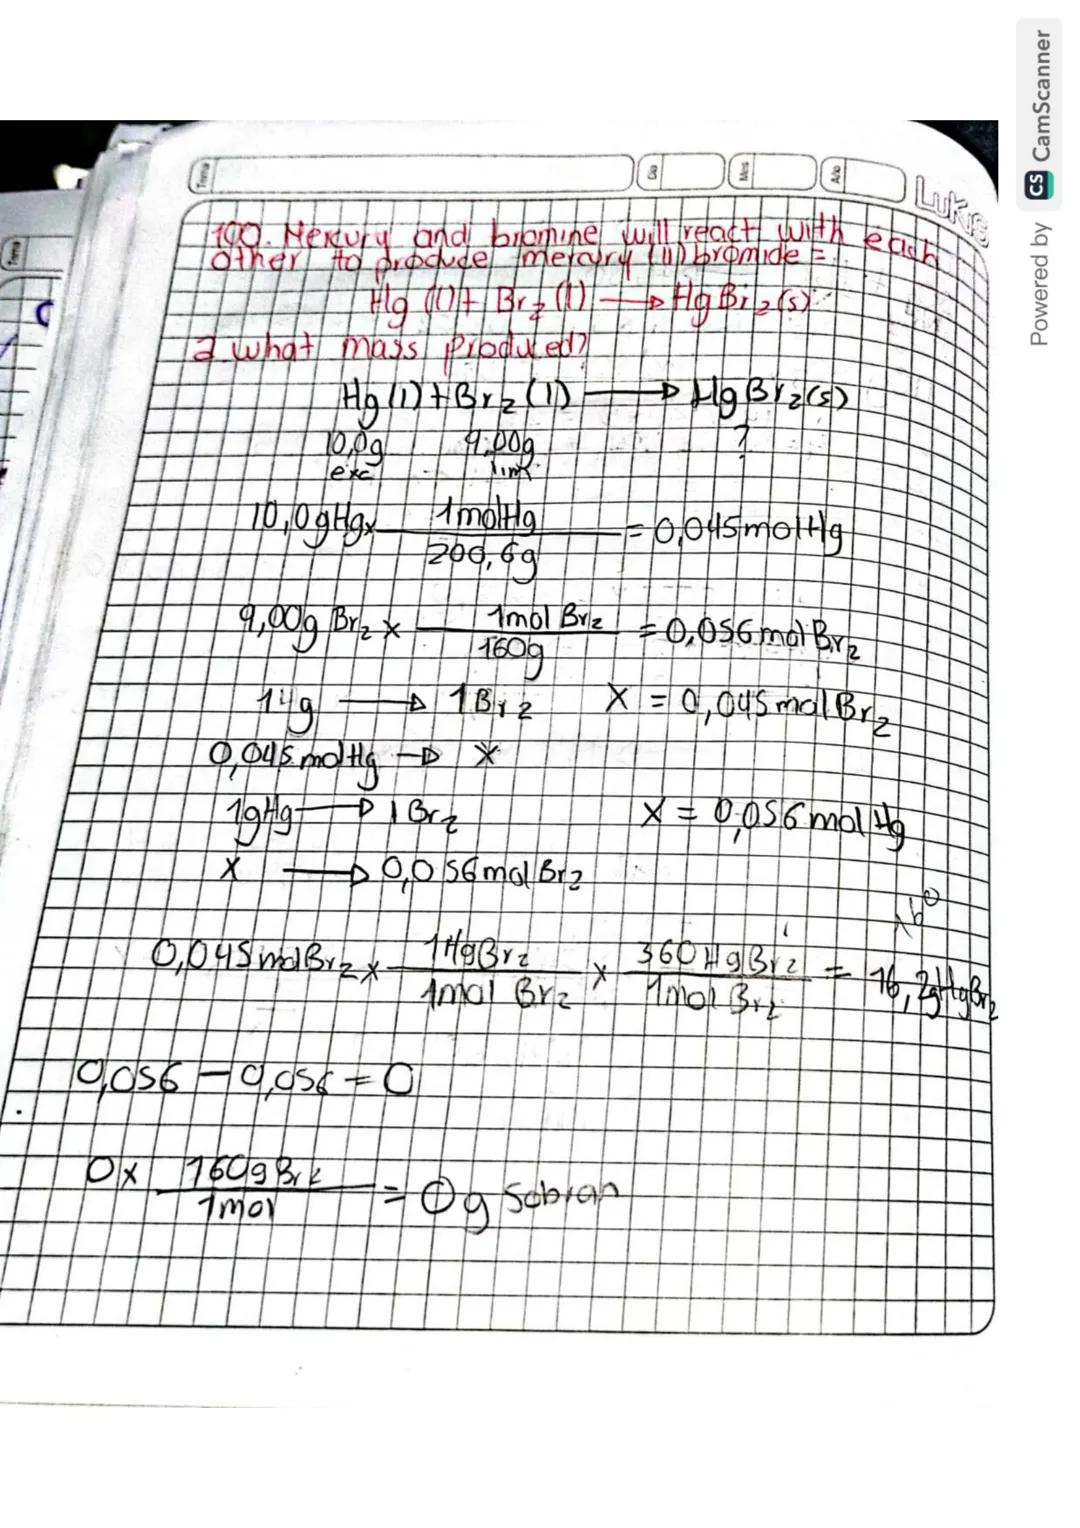 Tema Día Mes Año
LUKIS
100. Mercury and bromine will react with each
other to produce mercury (II) bromide =
Hg (l) + Br2 (l) → HgBr2 (s)
a what mass produced?
Hg (l) + Br2 (l) → HgBr2 (s)
10,0g 9,00g ?
exc lim
10,0gHg x 1molHg / 200,6g = 0,045molHg
9,00g Br2 x 1mol Br2 / 160g = 0,056mol Br2
1Hg → 1Br2 X = 0,045mol Br2
0,045 molHg → X
1gHg → 1Br2 X = 0,056mol Hg
X → 0,056mol Br2
0,045molBr2 x 1HgBr2 / 1mol Br2 x 360HgBr2 / 1mol Br2 = 16,2gHgBr2
0,056 - 0,056 = 0
0x 160g Br2 / 1mol = 0g Sobran
Powered by CS CamScanner